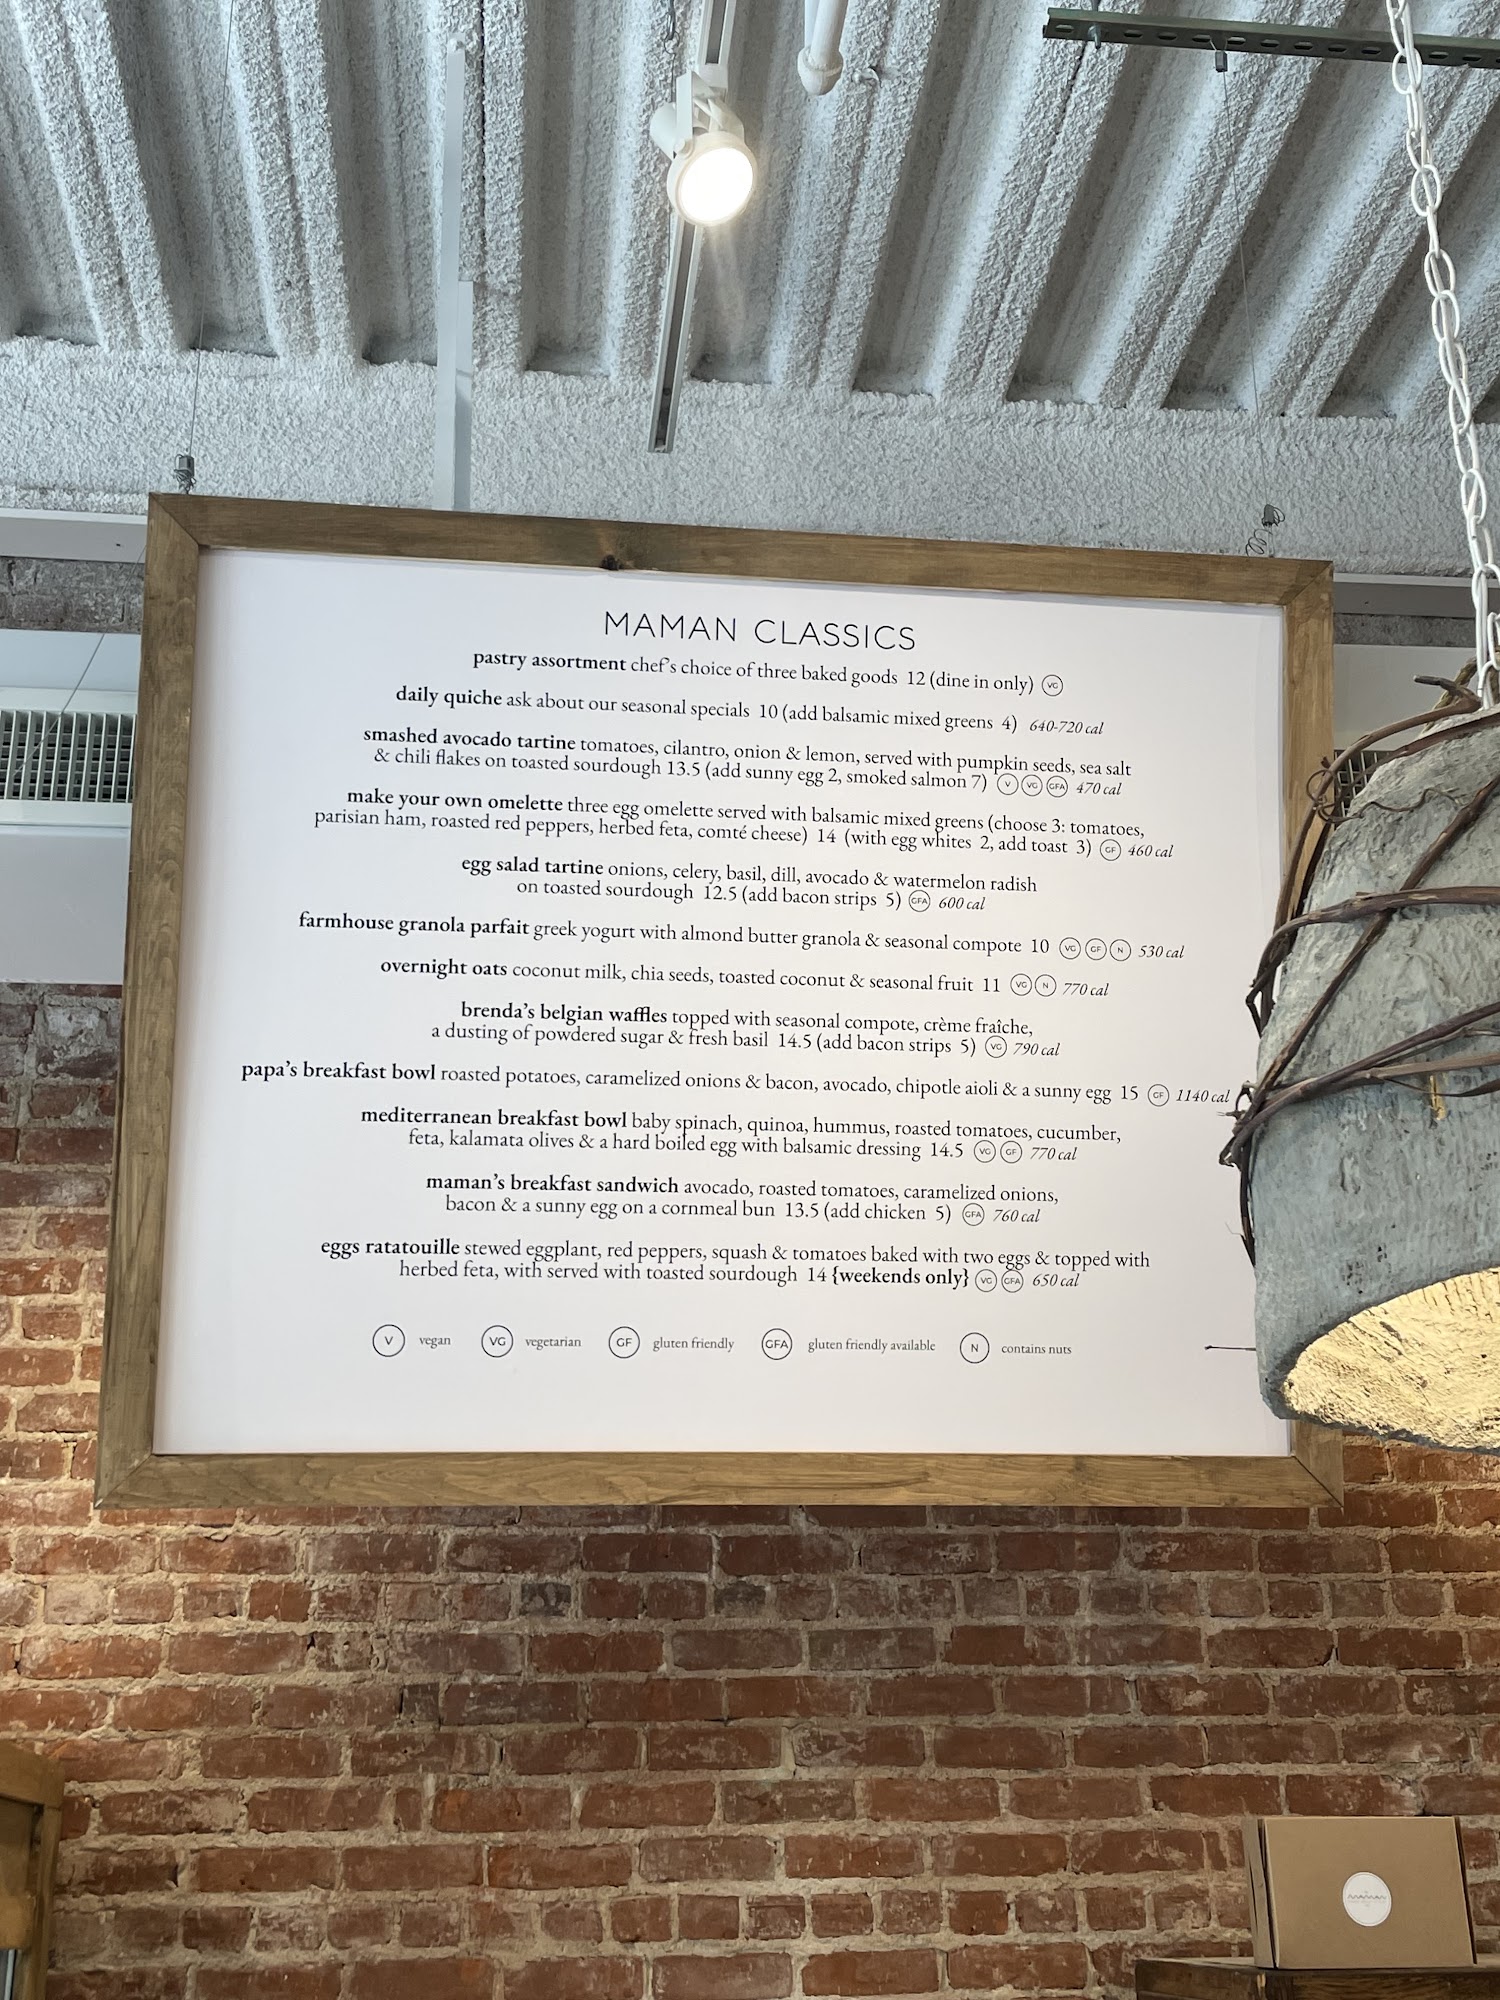 MAMAN CLASSICS
pastry assortment chef's choice of three baked goods 12 (dine in only) VG
daily quiche ask about our seasonal specials 10 (add balsamic mixed greens 4) 640-720 cal
smashed avocado tartine tomatoes, cilantro, onion & lemon, served with pumpkin seeds, sea salt
& chili flakes on toasted sourdough 13.5 (add sunny egg 2, smoked salmon 7) V VG GFA 470 cal
make your own omelette three egg omelette served with balsamic mixed greens (choose 3: tomatoes,
parisian ham, roasted red peppers, herbed feta, comté cheese) 14 (with egg whites 2, add toast 3) GF 460 cal
egg salad tartine onions, celery, basil, dill, avocado & watermelon radish
on toasted sourdough 12.5 (add bacon strips 5) GFA 600 cal
farmhouse granola parfait greek yogurt with almond butter granola & seasonal compote 10 VG GF N 530 cal
overnight oats coconut milk, chia seeds, toasted coconut & seasonal fruit 11 VG N 770 cal
brenda's belgian waffles topped with seasonal compote, crème fraîche,
a dusting of powdered sugar & fresh basil 14.5 (add bacon strips 5) VG 790 cal
papa's breakfast bowl roasted potatoes, caramelized onions & bacon, avocado, chipotle aioli & a sunny egg 15 GF 1140 cal
mediterranean breakfast bowl baby spinach, quinoa, hummus, roasted tomatoes, cucumber,
feta, kalamata olives & a hard boiled egg with balsamic dressing 14.5 VG GF 770 cal
maman's breakfast sandwich avocado, roasted tomatoes, caramelized onions,
bacon & a sunny egg on a cornmeal bun 13.5 (add chicken 5) GFA 760 cal
eggs ratatouille stewed eggplant, red peppers, squash & tomatoes baked with two eggs & topped with
herbed feta, with served with toasted sourdough 14 {weekends only} VG GFA 650 cal
V vegan VG vegetarian GF gluten friendly GFA gluten friendly available N contains nuts
MAMAN